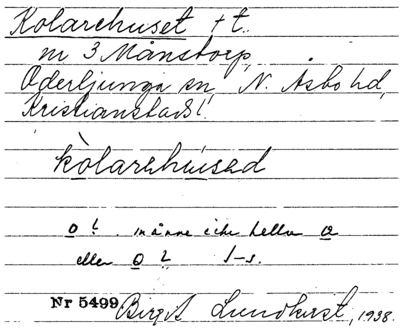 Kolarehuset + t.
m 3 Månstorp,
Oderljunga sn, N. Åsbo hd,
Kristianstads l.
kolarehused
o ? månne icke hellre a
eller o ? l–s.
Nr 5499. Birgit Lundkvist, 1938.